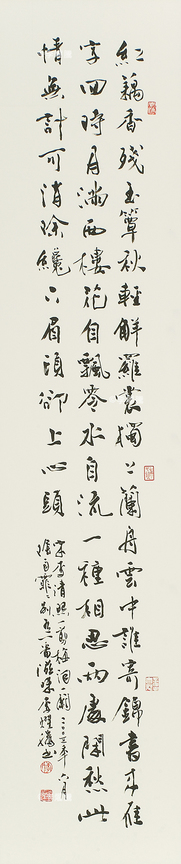 紅藕香殘玉簟秋輕解羅裳獨上蘭舟雲中誰寄錦書來雁
字回時月滿西樓花自飄零水自流一種相思兩處閒愁此
情無計可消除纔下眉頭卻上心頭
宋李清照一剪梅詞一闋二〇〇三年六月
一番滋味